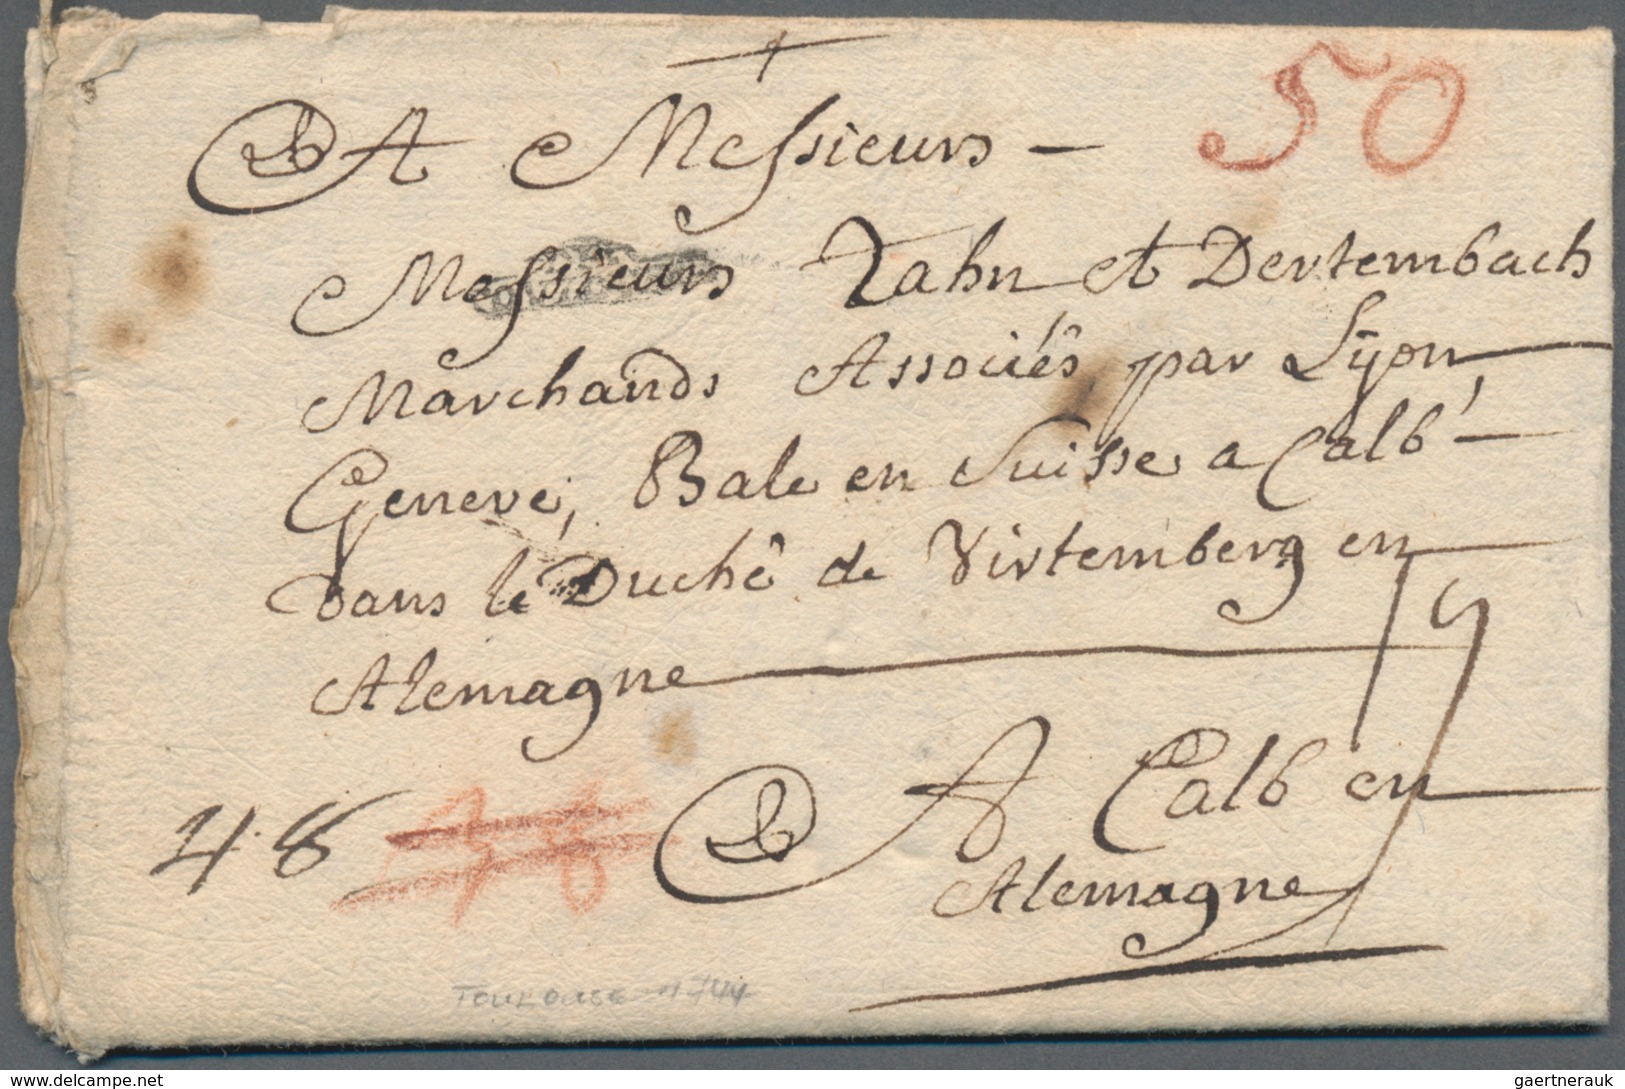 50
A Messieurs
Messieurs Zahn et Dertembach
Marchands Associés, par Lyon,
Geneve, Bale en Suisse a Calb
dans le Duchê de Virtemberg en
Alemagne
48
A Calb en
Alemagne
TOULOUSE 1744
delcampe.net
gaertnerauk